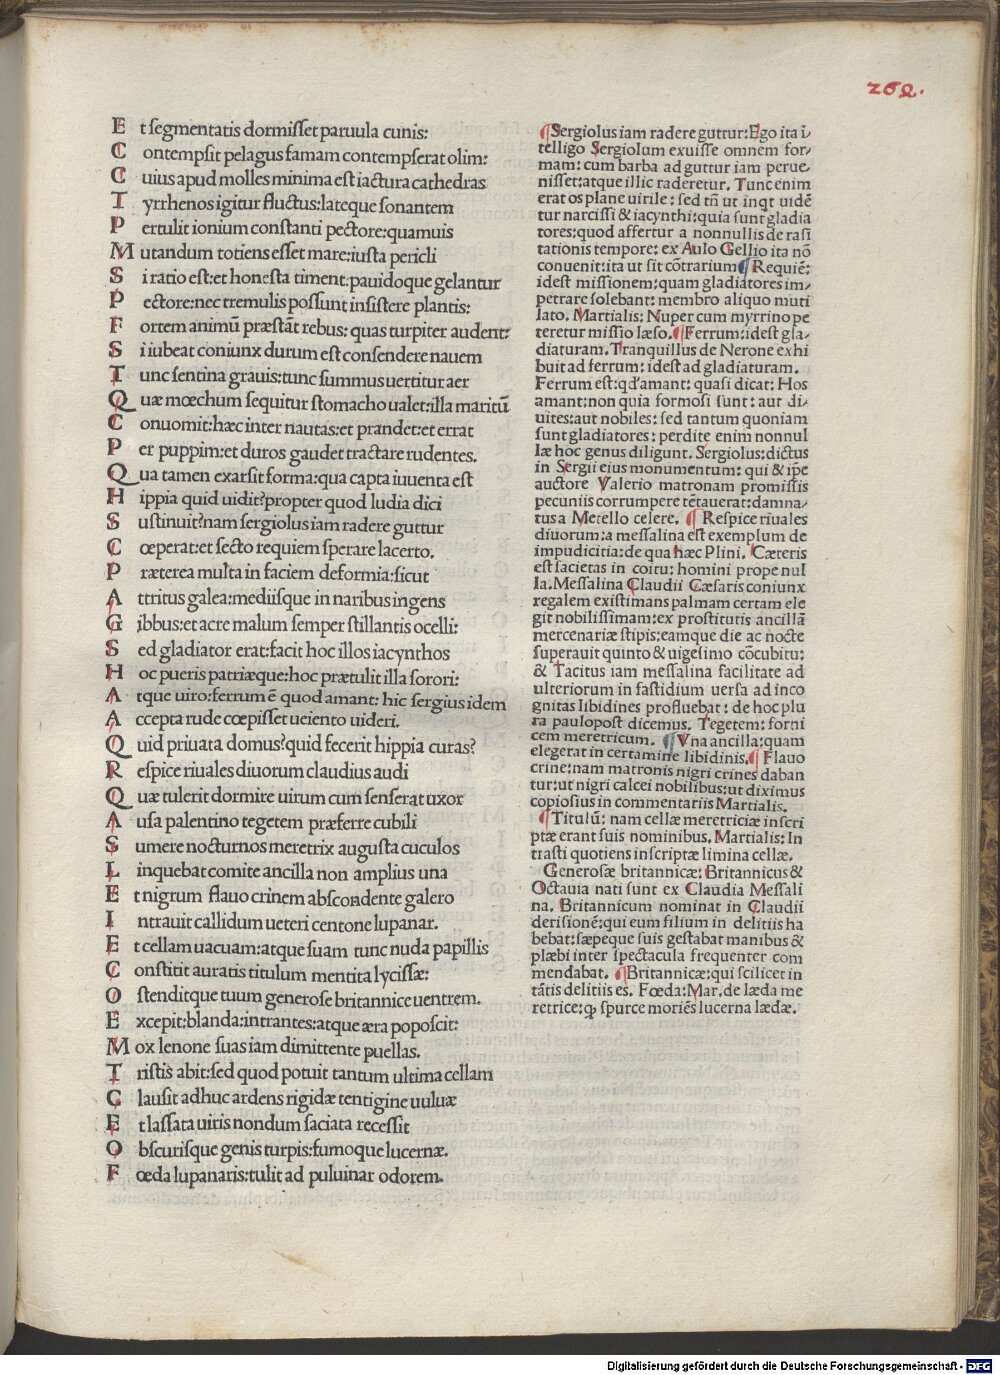 262.
Et segmentatis dormisset paruula cunis:
Contempsit pelagus famam contempserat olim:
Cuius apud molles minima est iactura cathedras
Tyrrhenos igitur fluctus: lateque sonantem
Pertulit ionium constanti pectore: quamuis
Mutandum totiens esset mare: iusta pericli
Si ratio est: et honesta timent: pauidoque gelantur
Pectore: nec tremulis possunt insistere plantis:
Fortem animū præstāt rebus: quas turpiter audent:
Si iubeat coniunx durum est consendere nauem
Tunc sentina grauis: tunc summus uertitur aer
Quæ mœchum sequitur stomacho ualet: illa maritū
Conuomit: hæc inter nautas: et prandet: et errat
Per puppim: et duros gaudet tractare rudentes.
Qua tamen exarsit forma: qua capta iuuenta est
Hippia quid uidit? propter quod ludia dici
Sustinuit? nam sergiolus iam radere guttur
Cœperat: et secto requiem sperare lacerto.
Præterea multa in faciem deformia: sicut
Attritus galea: mediisque in naribus ingens
Gibbus: et acre malum semper stillantis ocelli:
Sed gladiator erat: facit hoc illos iacynthos
Hoc pueris patriæque: hoc prætulit illa sorori:
Atque uiro: ferrum ē quod amant: hic sergius idem
Accepta rude cœpisset ueiento uideri.
Quid priuata domus? quid fecerit hippia curas?
Respice riuales diuorum claudius audi
Quæ tulerit dormire uirum cum senserat uxor
Ausa palentino tegetem præferre cubili
Sumere nocturnos meretrix augusta cuculos
Linquebat comite ancilla non amplius una
Et nigrum flauo crinem abscondente galero
Intrauit callidum ueteri centone lupanar.
Et cellam uacuam: atque suam tunc nuda papillis
Constitit auratis titulum mentita lycissæ:
Ostenditque tuum generose britannice uentrem.
Excepit: blanda: intrantes: atque æra poposcit:
Mox lenone suas iam dimittente puellas.
Tristis abit: sed quod potuit tantum ultima cellam
Clausit adhuc ardens rigidæ tentigine uuluæ
Et lassata uiris nondum saciata recessit
Obscurisque genis turpis: fumoque lucernæ.
Fœda lupanaris: tulit ad puluinar odorem.
¶Sergiolus iam radere guttur: Ego ita ī
telligo Sergiolum exuisse omnem for-
mam: cum barba ad guttur iam perue-
nisset: atque illic raderetur. Tunc enim
erat os plane uirile: sed tñ ut inqt uidē
tur narcissi & iacynthi: quia sunt gladia
tores: quod affertur a nonnullis de rasi
tationis tempore: ex Aulo Gellio ita nō
conuenit: ita ut sit cōtrarium ¶Requiē:
idest missionem: quam gladiatores im-
petrare solebant: membro aliquo muti
lato. Martialis: Nuper cum myrrino pe
teretur missio læso. ¶Ferrum: idest gla-
diaturam. Tranquillus de Nerone exhi
buit ad ferrum: idest ad gladiaturam.
Ferrum est: qd'amant: quasi dicat: Hos
amant: non quia formosi sunt: aut di-
uites: aut nobiles: sed tantum quoniam
sunt gladiatores: perdite enim nonnul
læ hoc genus diligunt. Sergiolus: dictus
in Sergii eius monumentum: qui & ip̄e
auctore Valerio matronam promissis
pecuniis corrumpere tētauerat: damna-
tus a Metello celere. ¶ Respice riuales
diuorum: a messalina est exemplum de
impudicitia: de qua hæc Plini. Cæteris
est sacietas in coitu: homini prope nul
la. Messalina Claudii Cæsaris coniunx
regalem existimans palmam certam ele
git nobilissimam: ex prostitutis ancillā
mercenariæ stipis: eamque die ac nocte
superauit quinto & uigesimo cōcubitu:
& Tacitus iam messalina facilitate ad
ulteriorum in fastidium uersa ad inco
gnitas libidines profluebat: de hoc plu
ra paulopost dicemus. Tegetem: forni
cem meretricum. ¶Vna ancilla: quam
elegerat in certamine libidinis. ¶Flauo
crine: nam matronis nigri crines daban
tur: ut nigri calcei nobilibus: ut diximus
copiosius in commentariis Martialis.
¶Titulū: nam cellæ meretriciæ inscri
ptæ erant suis nominibus. Martialis: In
trasti quotiens inscriptæ limina cellæ.
Generosæ britannicæ: Britannicus &
Octauia nati sunt ex Claudia Messali
na. Britannicum nominat in Claudii
derisionē: qui eum filium in delitiis ha
bebat: sæpeque suis gestabat manibus &
plæbi inter spectacula frequenter com
mendabat. ¶Britannicæ: qui scilicet in
tātis delitiis es. Fœda: Mar. de læda me
retrice: qꝫ spurce moriēs lucerna lædæ.
Digitalisierung gefördert durch die Deutsche Forschungsgemeinschaft - DFG